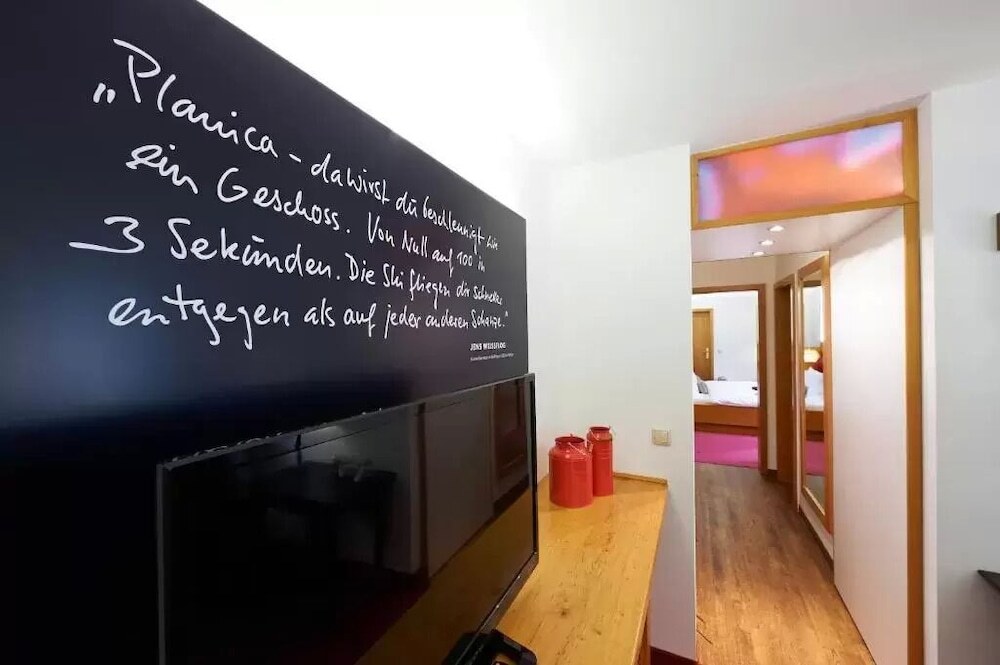 „Planica – da wirst du beschleunigt wie
ein Geschoss. Von Null auf 100 in
3 Sekunden. Die Ski fliegen dir schneller
entgegen als auf jeder anderen Schanze."
JENS WEISSFLOG